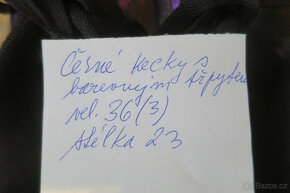 Černé kecky s
barevným třpytem
vel. 36 (3)
stélka 23
Bazoš.cz